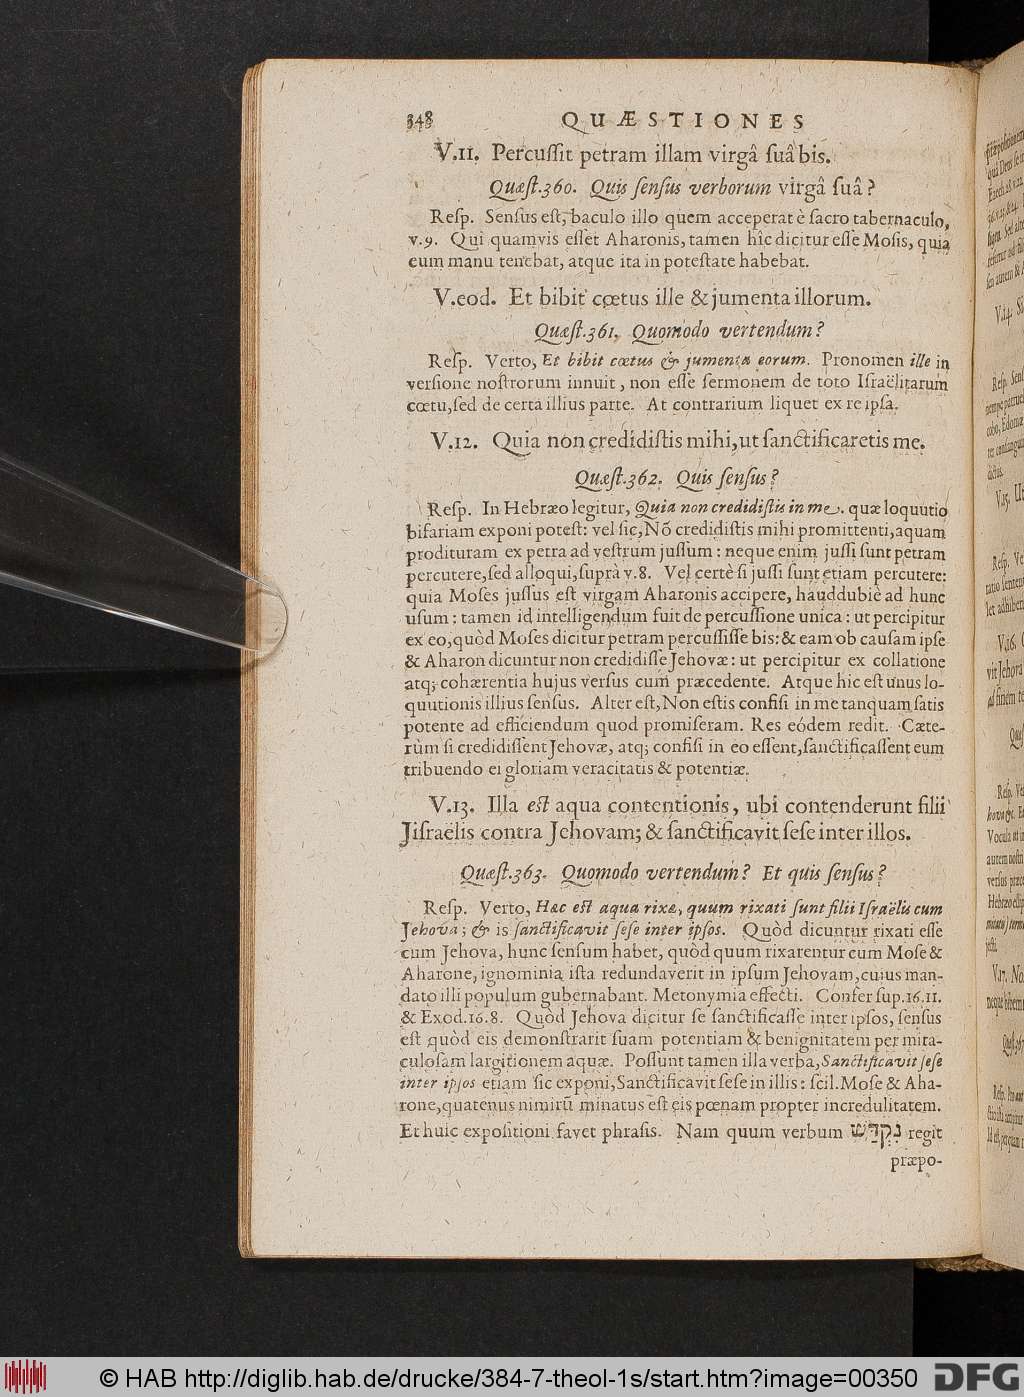 348 QUÆSTIONES
V.11. Percuſſit petram illam virgâ ſuâ bis.
Quæſt.360. Quis ſenſus verborum virgâ ſuâ?
Reſp. Senſus eſt, baculo illo quem acceperat è ſacro tabernaculo,
v.9. Qui quamvis eſſet Aharonis, tamen hîc dicitur eſſe Moſis, quia
eum manu tenebat, atque ita in poteſtate habebat.
V.eod. Et bibit cœtus ille & jumenta illorum.
Quæſt.361. Quomodo vertendum?
Reſp. Verto, Et bibit cœtus & jumenta eorum. Pronomen ille in
verſione noſtrorum innuit, non eſſe ſermonem de toto Iſraëlitarum
cœtu, ſed de certa illius parte. At contrarium liquet ex re ipſa.
V.12. Quia non credidiſtis mihi, ut ſanctificaretis me.
Quæſt.362. Quis ſenſus?
Reſp. In Hebræo legitur, Quia non credidiſtis in me. quæ loquutio
bifariam exponi poteſt: vel ſic, Nō credidiſtis mihi promittenti, aquam
prodituram ex petra ad veſtrum juſſum: neque enim juſſi ſunt petram
percutere, ſed alloqui, ſuprà v.8. Vel certè ſi juſſi ſunt etiam percutere:
quia Moſes juſſus eſt virgam Aharonis accipere, hauddubiè ad hunc
uſum: tamen id intelligendum fuit de percuſſione unica: ut percipitur
ex eo, quòd Moſes dicitur petram percuſſiſſe bis: & eam ob cauſam ipſe
& Aharon dicuntur non credidiſſe Jehovæ: ut percipitur ex collatione
atq; cohærentia hujus verſus cum præcedente. Atque hic eſt unus lo-
quutionis illius ſenſus. Alter eſt, Non eſtis confiſi in me tanquam ſatis
potente ad efficiendum quod promiſeram. Res eódem redit. Cæte-
rùm ſi credidiſſent Jehovæ, atq; confiſi in eo eſſent, ſanctificaſſent eum
tribuendo ei gloriam veracitatis & potentiæ.
V.13. Illa eſt aqua contentionis, ubi contenderunt filii
Jiſraëlis contra Jehovam; & ſanctificavit ſeſe inter illos.
Quæſt.363. Quomodo vertendum? Et quis ſenſus?
Reſp. Verto, Hæc eſt aqua rixæ, quum rixati ſunt filii Iſraëlis cum
Jehova; & is ſanctificavit ſeſe inter ipſos. Quòd dicuntur rixati eſſe
cum Jehova, hunc ſenſum habet, quòd quum rixarentur cum Moſe &
Aharone, ignominia iſta redundaverit in ipſum Jehovam, cujus man-
dato illi populum gubernabant. Metonymia effecti. Confer ſup.16.11.
& Exod.16.8. Quòd Jehova dicitur ſe ſanctificaſſe inter ipſos, ſenſus
eſt quòd eis demonſtrarit ſuam potentiam & benignitatem per mira-
culoſam largitionem aquæ. Poſſunt tamen illa verba, Sanctificavit ſeſe
inter ipſos etiam ſic exponi, Sanctificavit ſeſe in illis: ſcil. Moſe & Aha-
rone, quatenus nimirū minatus eſt eis pœnam propter incredulitatem.
Et huic expoſitioni favet phraſis. Nam quum verbum נִקְדַּשׁ regit
præpo-
© HAB http://diglib.hab.de/drucke/384-7-theol-1s/start.htm?image=00350 DFG